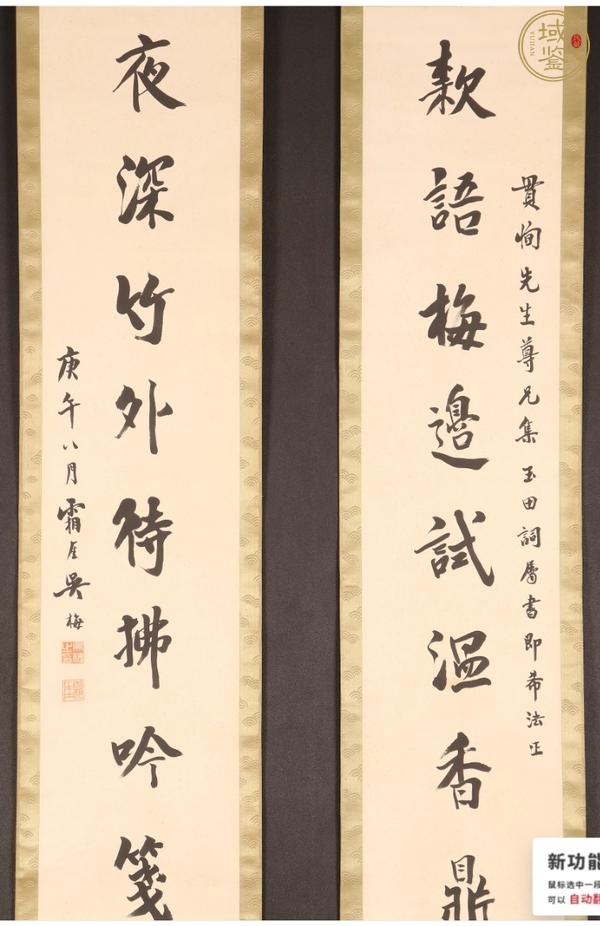 款語梅邊試溫香鼎
貫恂先生尊兄集玉田詞屬書即希法正
夜深竹外待拂吟箋
庚午八月霜厓吳梅
域鑒
YUJIAN
新功能
鼠标选中一段
可以 自动翻